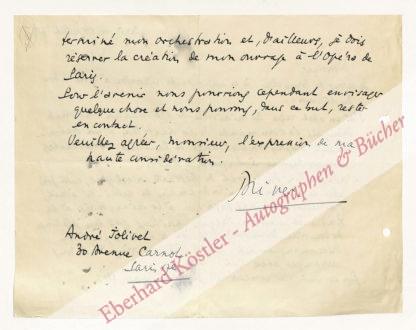 terminé mon orchestration et, d'ailleurs, je dois
réserver la création de mon ouvrage à l'Opéra de
Paris.
Pour l'avenir nous pourrions cependant envisager
quelque chose et nous pouvons, dans ce but, rester
en contact.
Veuillez agréer, monsieur, l'expression de ma
haute considération.
André Jolivet
30 Avenue Carnot
Paris
Eberhard Köstler - Autographen & Bücher